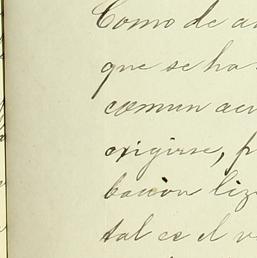 Como de a
que se ha
comun acu
exigirse, p
bación liz
tal es el v